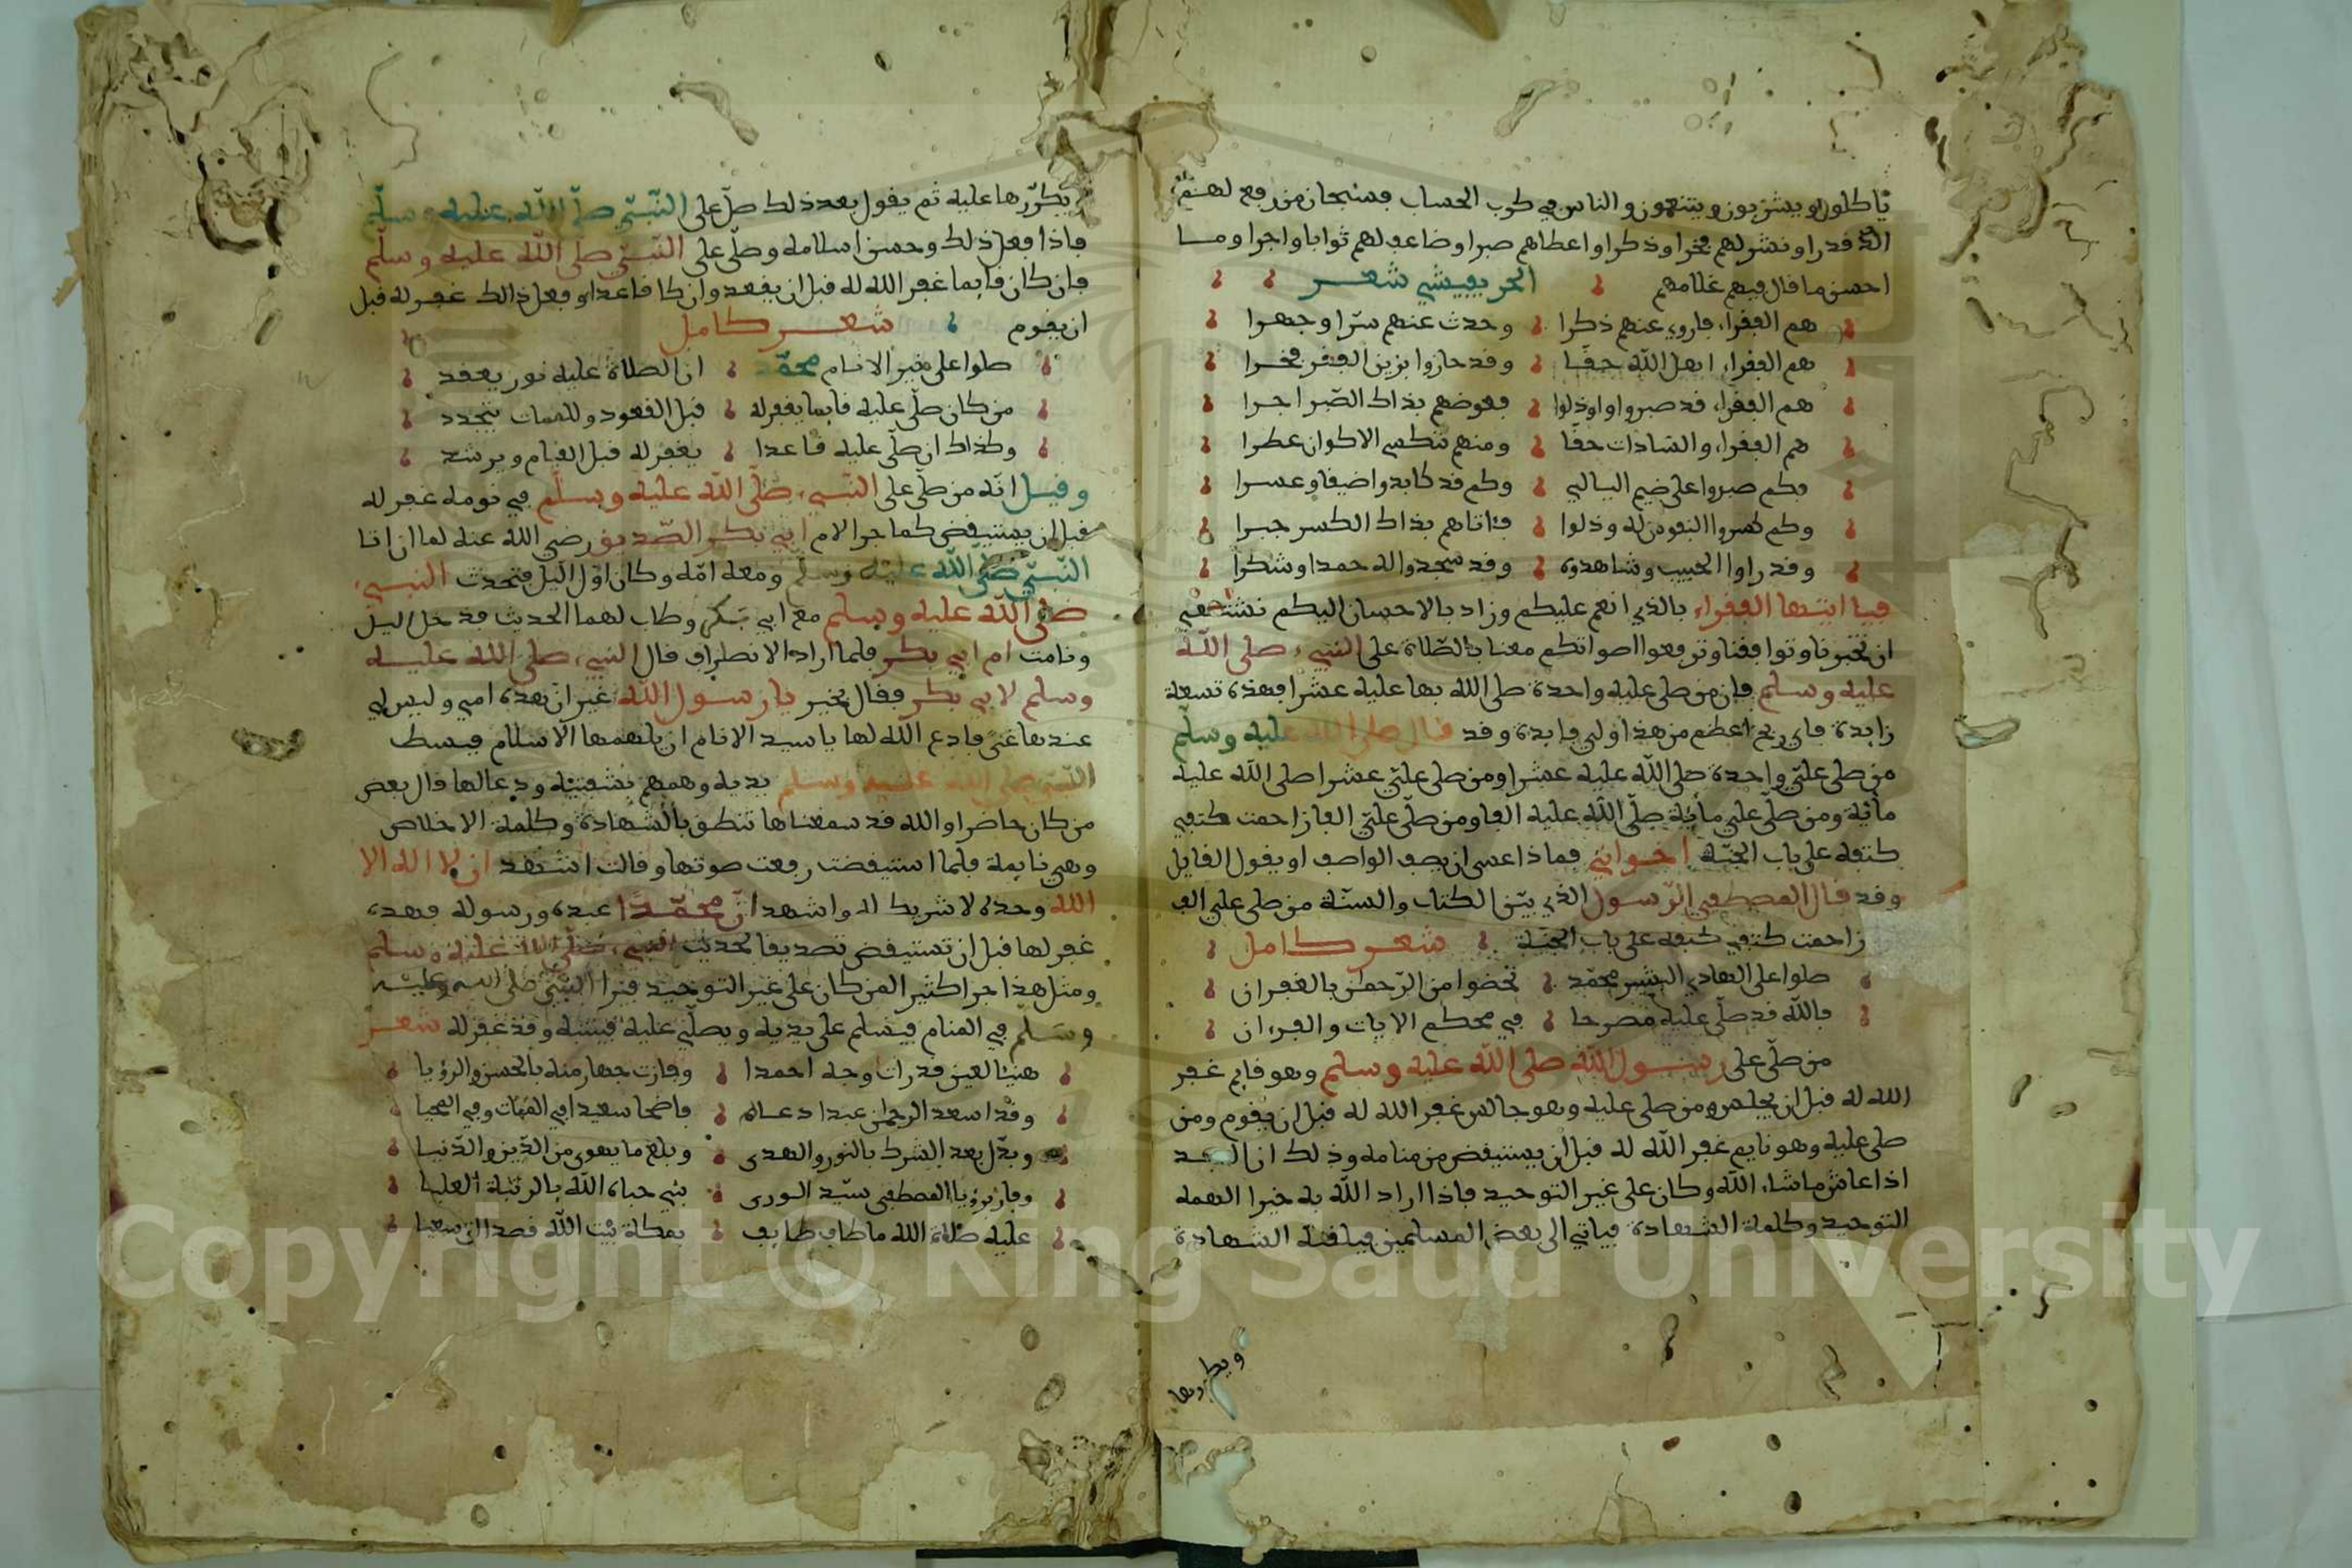 ياكلون ويشربون ويتنعمون والناس في كرب الحساب فسبحان من رفع لهم
قدرا ونشر لهم فخرا وذكرا واعطاهم صبرا وضاعف لهم ثوابا واجرا وما
احسن ما قال فيهم غلامهم الحريفيشي شعر
هم الفقراء فاروي عنهم ذكرا وحدث عنهم سرّا وجهرا
هم الفقراء اهل الله حقّا وقد حازوا بزين الفقر فخرا
هم الفقراء قد صبروا واوذلوا فعوضهم بذاك الصّبر اجرا
هم الفقراء والسّادات حقّا ومنهم تكتسي الاكوان عطرا
فكم صبروا على ضيم اليالي وكم قد كابدوا ضيقا وعسرا
وكم كسروا النفوس له وذلوا فاتاهم بذاك الكسر جبرا
وقد راوا الحبيب وشاهدوه وقد سجدوا له حمدا وشكرا
فيا ايّها الفقراء بالذي انعم عليكم وزاد بالاحسان اليكم
ان تجبرونا وتوافقنا وترفعوا اصواتكم معنا بالصّلاة على النبي صلى الله
عليه وسلم فان من صلى عليه واحدة صلى الله بها عليه عشرا فهذه تسعة
زايدة فاي ربح اعظم من هذا واي فايدة وقد قال صلى الله عليه وسلّم
من صلى عليّ واحدة صلى الله عليه عشرا ومن صلى عليّ عشرا صلى الله عليه
مأية ومن صلّى علي مأية صلّى الله عليه الفا ومن صلّى عليّ الفا زاحمت كتفي
كتفه على باب الجنّة اخواني فماذا عسى ان يصف الواصف او يقول القايل
وقد قال المصطفى الرّسول الذي بيّن الكتاب والسنّة من صلى علي الف
زاحمت كتفي كتفه على باب الجنّة شعر كامل
صلوا على الهادي البشير محمّد تحضوا من الرّحمٰن بالغفران
فالله قد صلّى عليه مصرحا في محكم الايات والقرءان
من صلّى على رسول الله صلى الله عليه وسلم وهو قايم غفر
الله له قبل ان يجلس ومن صلى عليه وهو جالس غفر الله له قبل ان يقوم ومن
صلى عليه وهو نايم غفر الله له قبل ان يستيقض من منامه وذلك ان العبد
اذا عاش ما شاء الله وكان على غير التوحيد فاذا اراد الله به خيرا الهمه
التوحيد وكلمة الشهادة فياتي الى بعض المسلمين فيلقنه الشهادة
يكرّرها عليه ثم يقول بعد ذلك صلّ على النّبيّ صلّى الله عليه وسلّم
فاذا فعل ذلك وحسن اسلامه وصلّى على النّبيّ صلّى الله عليه وسلّم
فان كان قايما غفر الله له قبل ان يقعد وان كا قاعدا وفعل ذالك غفر له قبل
ان يقوم شعر كامل
صلوا على خير الانام محمّد ان الصلاة عليه نور يعقد
من كان صلّى عليه قايما يغفر له قبل القعود وللممات يتجدد
وكذاك ان صلّى عليه قاعدا يغفر له قبل القيام ويرشد
وقيل انّه من صلّى على النّبي صلّى الله عليه وسلّم في نومه غفر له
قبل ان يستيقض كما جرا لام ابي بكر الصّديق رضي الله عنه لما ان اتا
النّبيّ صلّى الله عليه وسلّم ومعه امّه وكان اوّل اليل فتحدث النبي
صلّى الله عليه وسلم مع ابي بكر وطاب لهما الحديث فدخل اليل
ونامت ام ابي بكر فلما اراد الانصراف قال النبي صلى الله عليه
وسلم لابي بكر فقال بخير يا رسول الله غير ان هذه امي وليس لي
عندها غنى فادع الله لها يا سيد الانام ان يلهمها الاسلام فبسط
النّبي صلى الله عليه وسلم يديه وهمهم بشفتيه ودعا لها قال بعض
من كان حاضرا والله قد سمعناها تنطق بالشهادة وكلمة الاخلاص
وهي نايمة فلما استيقضت رفعت صوتها وقالت اشهد ان لا اله الا
الله وحده لا شريك له واشهد انّ محمّدا عبده ورسوله فهذه
غفر لها قبل ان تستيقض تصديقا لحديث النبي صلّى الله عليه وسلم
ومثل هذا جرا كثير المن كان على غير التوحيد فيرا النّبيّ صلى الله عليه
وسلّم في المنام فيسلم على يديه ويصلّي عليه فينتبه وقد غفر له شعر
هنيئا لعين قد رات وجه احمدا وفازت جهارا منه بالحسن والرؤيا
وقد اسعد الرحمٰن عبدا دعاله فاضحا سعيدا في الممات وفي المحيا
وبدّل بعد الشرك بالنور والهدى وبلغ ما يهوى من الدّين والدّنيا
وفاز برؤيا المصطفى سيّد الورى نبي حباه الله بالرتبة العليا
عليه صلاة الله ما طاف طايف بمكة بيت الله قصدا الى سعيا
Copyright © King Saud University